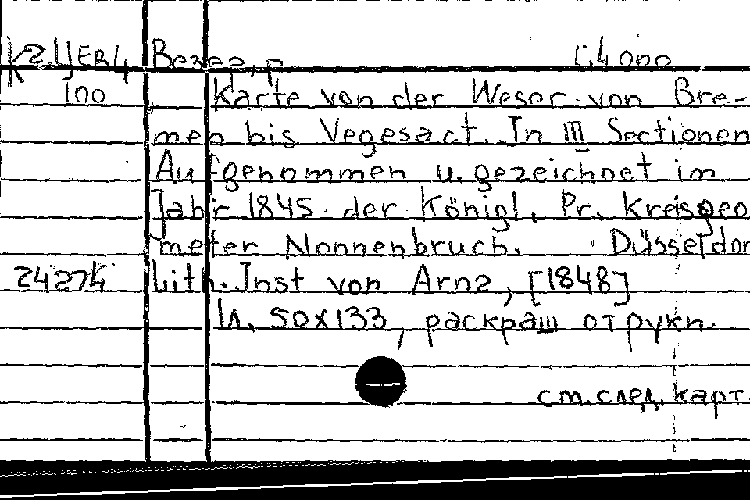 K2ЦЕВ/4 Везер, р. 1:4000
100 Karte von der Weser von Bre-
men bis Vegesack. In III Sectionen
Aufgenommen u. gezeichnet im
Jahr 1845 der Königl. Pr. Kreisgeo
meter Nonnenbruch. Düsseldor
24274 Lith. Inst von Arnz, [1848]
1л. 50x133, раскраш от руки.
см. след. карт.